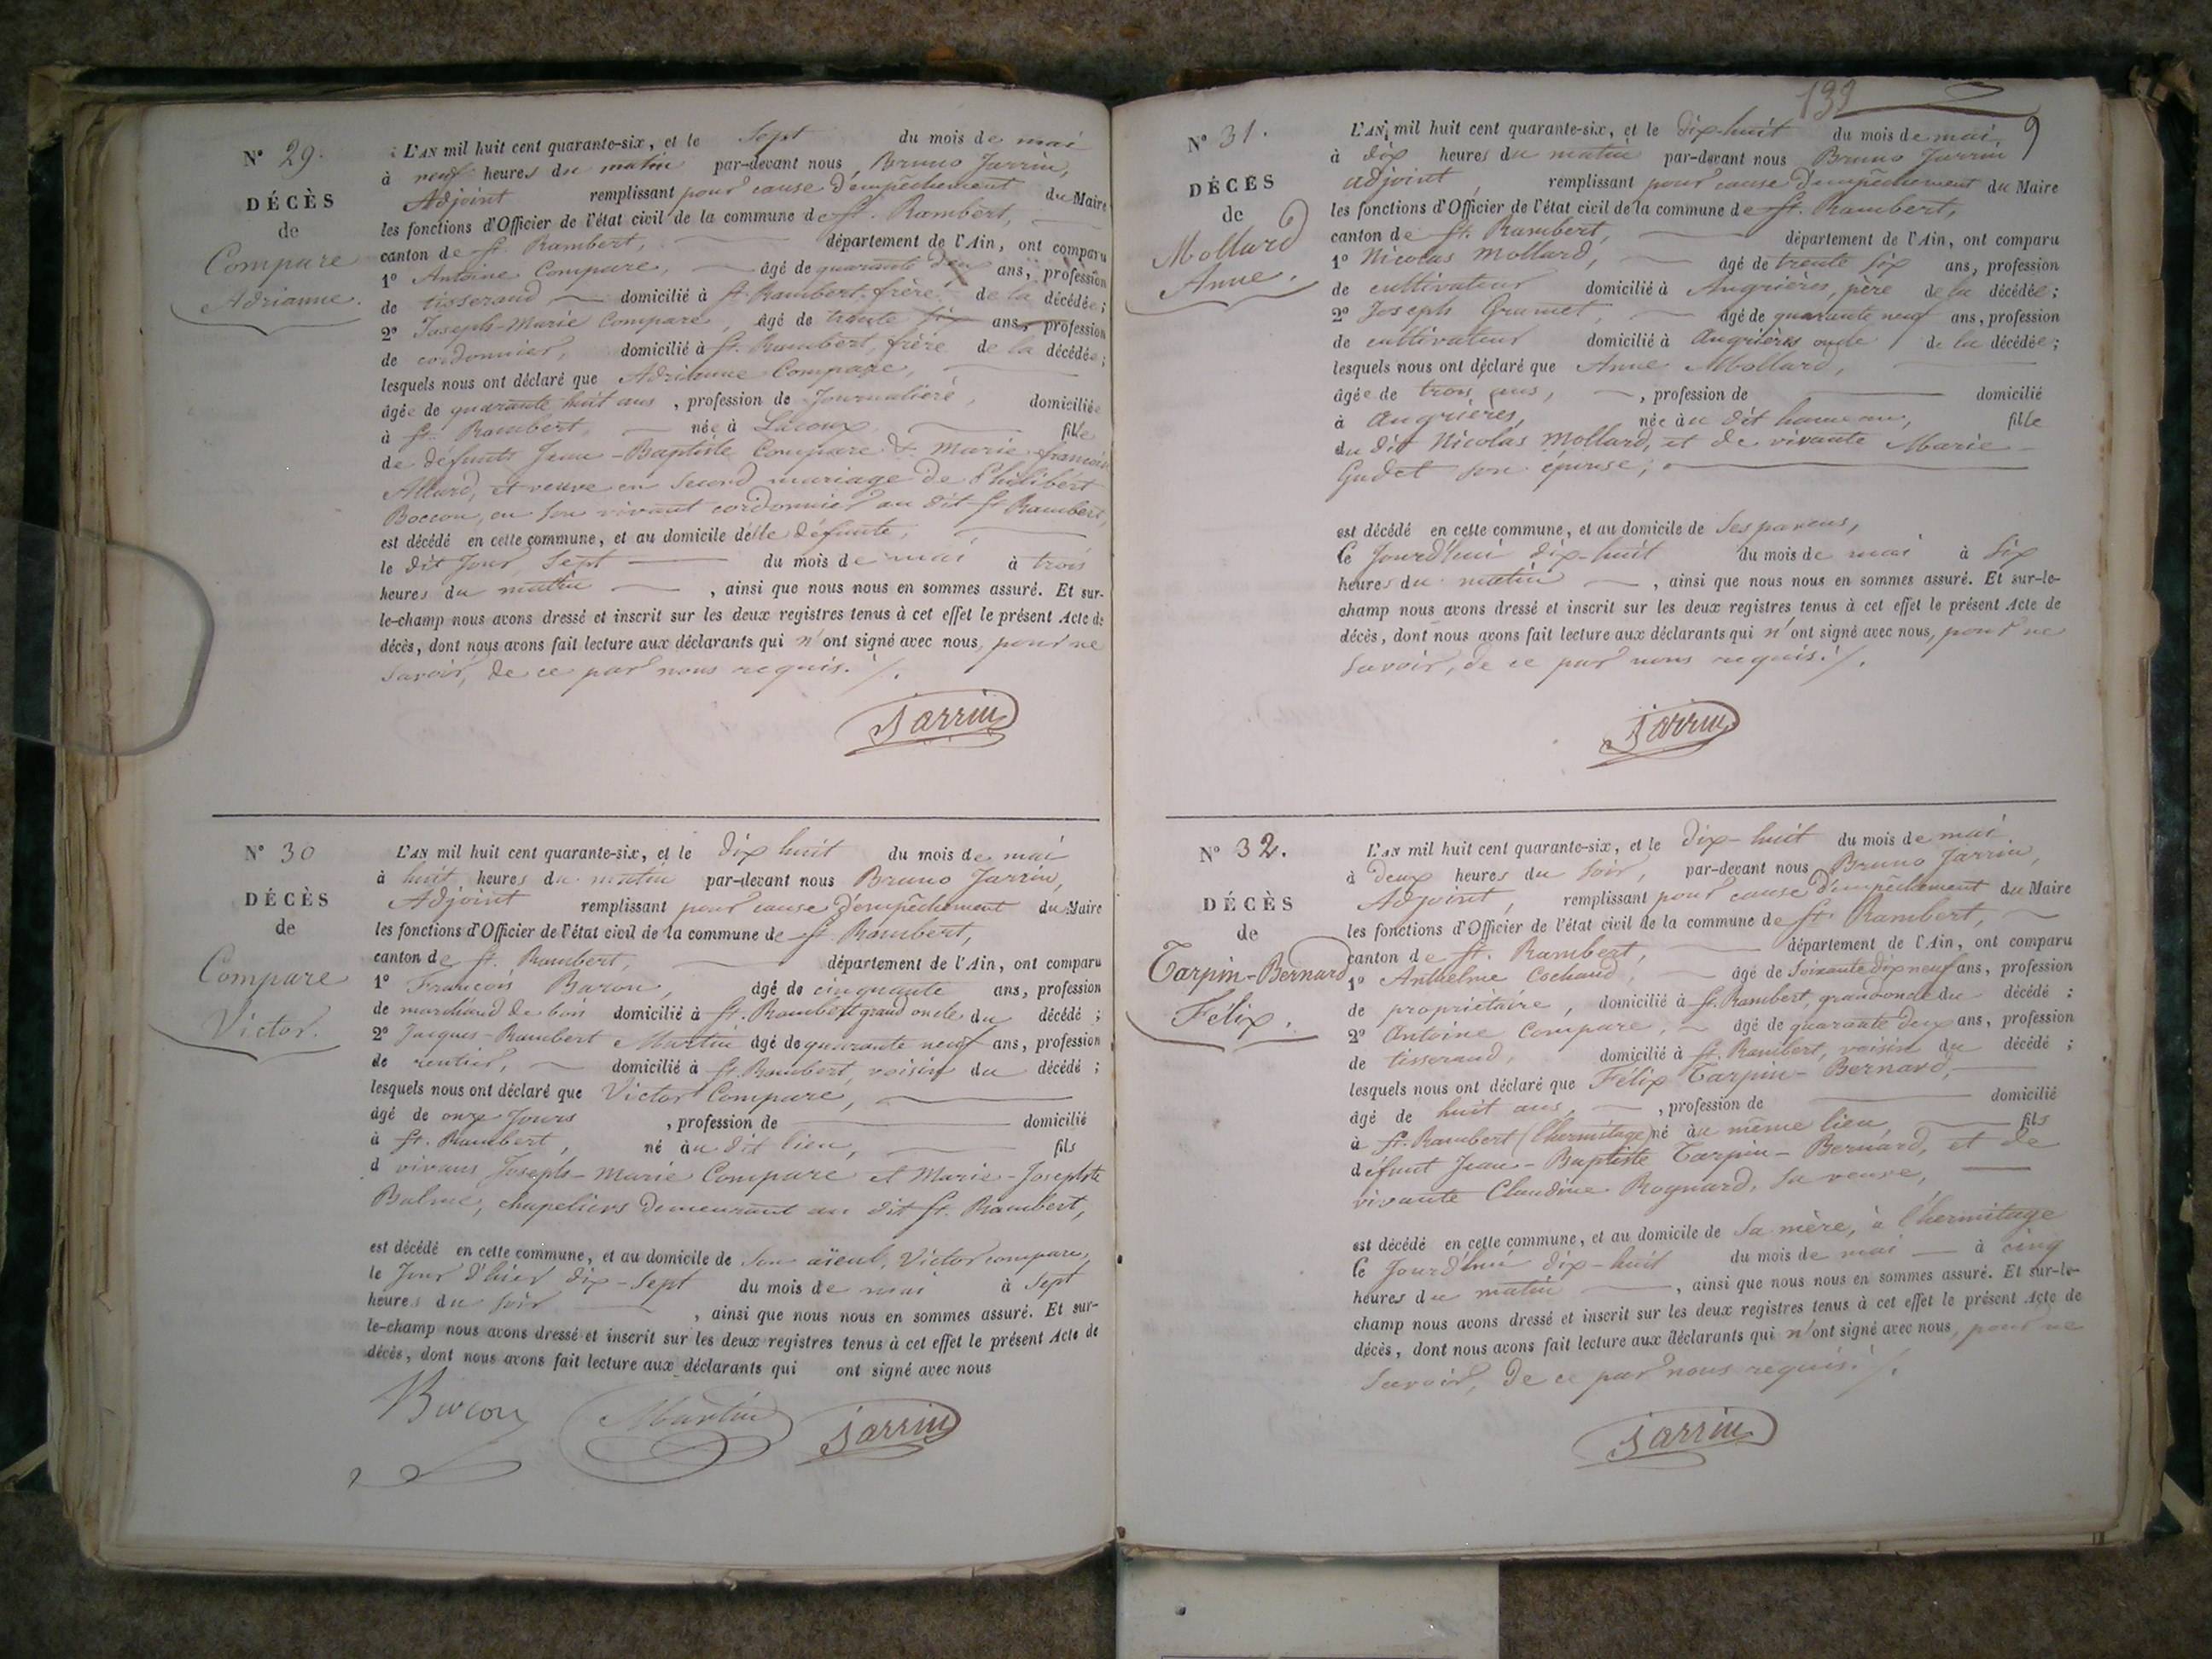 N° 29.
DÉCÈS
de
Compare
Adrianne.
L'AN mil huit cent quarante-six, et le Sept du mois de mai
à neuf heures du matin par-devant nous Bruno Jarrin,
Adjoint remplissant pour cause d'empêchement du Maire
les fonctions d'Officier de l'état civil de la commune de St. Rambert,
canton de St. Rambert, département de l'Ain, ont comparu
1° Antoine Compare, âgé de quarante deux ans, profession
de tisserand domicilié à St. Rambert, frère de la décédée;
2° Joseph-Marie Compare, âgé de trente six ans, profession
de cordonnier, domicilié à St. Rambert, frère de la décédée;
lesquels nous ont déclaré que Adrianne Compare,
âgée de quarante huit ans, profession de Journalière, domiciliée
à St. Rambert, née à Lacoux fille
de défunts Jean-Baptiste Compare & Marie-françoise
Allard, et veuve en second mariage de Philibert
Boccon, en son vivant cordonnier au dit St Rambert,
est décédé en cette commune, et au domicile de lle défunte,
le dit Jour Sept du mois de mai à trois
heures du matin, ainsi que nous nous en sommes assuré. Et sur-
le-champ nous avons dressé et inscrit sur les deux registres tenus à cet effet le présent Acte de
décès, dont nous avons fait lecture aux déclarants qui n'ont signé avec nous, pour ne
Savoir, de ce par nous requis. /.
Jarrin
N° 30
DÉCÈS
de
Compare
Victor.
L'AN mil huit cent quarante-six, et le dix huit du mois de mai
à huit heures du matin par-devant nous Bruno Jarrin,
Adjoint remplissant pour cause d'empêchement du Maire
les fonctions d'Officier de l'état civil de la commune de St Rambert,
canton de St. Rambert, département de l'Ain, ont comparu
1° François Baron, âgé de cinquante ans, profession
de marchand de bois domicilié à St. Rambert grand oncle du décédé;
2° Jacques-Rambert Martin âgé de quarante neuf ans, profession
de rentier, domicilié à St. Rambert, voisin du décédé;
lesquels nous ont déclaré que Victor Compare,
âgé de onze Jours, profession de domicilié
à St. Rambert, né au dit lieu, fils
d vivans Joseph-Marie Compare et Marie-Josephte
Balme, chapeliers demeurant au dit St. Rambert,
est décédé en cette commune, et au domicile de son aïeul, Victor compare,
le Jour d'hier dix-Sept du mois de mai à Sept
heures du soir, ainsi que nous nous en sommes assuré. Et sur-
le-champ nous avons dressé et inscrit sur les deux registres tenus à cet effet le présent Acte de
décès, dont nous avons fait lecture aux déclarants qui ont signé avec nous
Baron Martin Jarrin
139
N° 31.
DÉCÈS
de
Mollard
Anne.
L'AN mil huit cent quarante-six, et le dix-huit du mois de mai,
à dix heures du matin par-devant nous Bruno Jarrin
adjoint, remplissant pour cause d'empêchement du Maire
les fonctions d'Officier de l'état civil de la commune de St. Rambert,
canton de St. Rambert, département de l'Ain, ont comparu
1° Nicolas Mollard, âgé de trente six ans, profession
de cultivateur domicilié à Angrières, père de la décédée;
2° Joseph Grumet, âgé de quarante neuf ans, profession
de cultivateur domicilié à Angrières oncle de la décédée;
lesquels nous ont déclaré que Anne Mollard,
âgée de trois ans, profession de domicilié
à Angrières, née au dit hameau, fille
du dit Nicolas Mollard, et de vivante Marie-
Gudet son épouse;
est décédé en cette commune, et au domicile de Ses parens,
le Jourd'hui dix-huit du mois de mai à Six
heures du matin, ainsi que nous nous en sommes assuré. Et sur-le-
champ nous avons dressé et inscrit sur les deux registres tenus à cet effet le présent Acte de
décès, dont nous avons fait lecture aux déclarants qui n'ont signé avec nous, pour ne
Savoir, de ce par nous requis. /.
Jarrin
N° 32.
DÉCÈS
de
Tarpin-Bernard
Félix.
L'AN mil huit cent quarante-six, et le dix-huit du mois de mai
à deux heures du Soir, par-devant nous Bruno Jarrin,
Adjoint, remplissant pour cause d'empêchement du Maire
les fonctions d'Officier de l'état civil de la commune de St. Rambert,
canton de St. Rambert, département de l'Ain, ont comparu
1° Anthelme Cochaud, âgé de Soixante dix neuf ans, profession
de propriétaire, domicilié à St. Rambert, grand oncle du décédé;
2° Antoine Compare, âgé de quarante deux ans, profession
de tisserand, domicilié à St. Rambert, voisin du décédé;
lesquels nous ont déclaré que Félix Tarpin-Bernard,
âgé de huit ans, profession de domicilié
à St. Rambert (l'hermitage) né au même lieu, fils
défunt Jean-Baptiste Tarpin-Bernard, et de
vivante Claudine Rognard, sa veuve,
est décédé en cette commune, et au domicile de Sa mère, à l'hermitage
le Jourd'hui dix-huit du mois de mai à cinq
heures du matin, ainsi que nous nous en sommes assuré. Et sur-le-
champ nous avons dressé et inscrit sur les deux registres tenus à cet effet le présent Acte de
décès, dont nous avons fait lecture aux déclarants qui n'ont signé avec nous, pour ne
Savoir, de ce par nous requis. /.
Jarrin